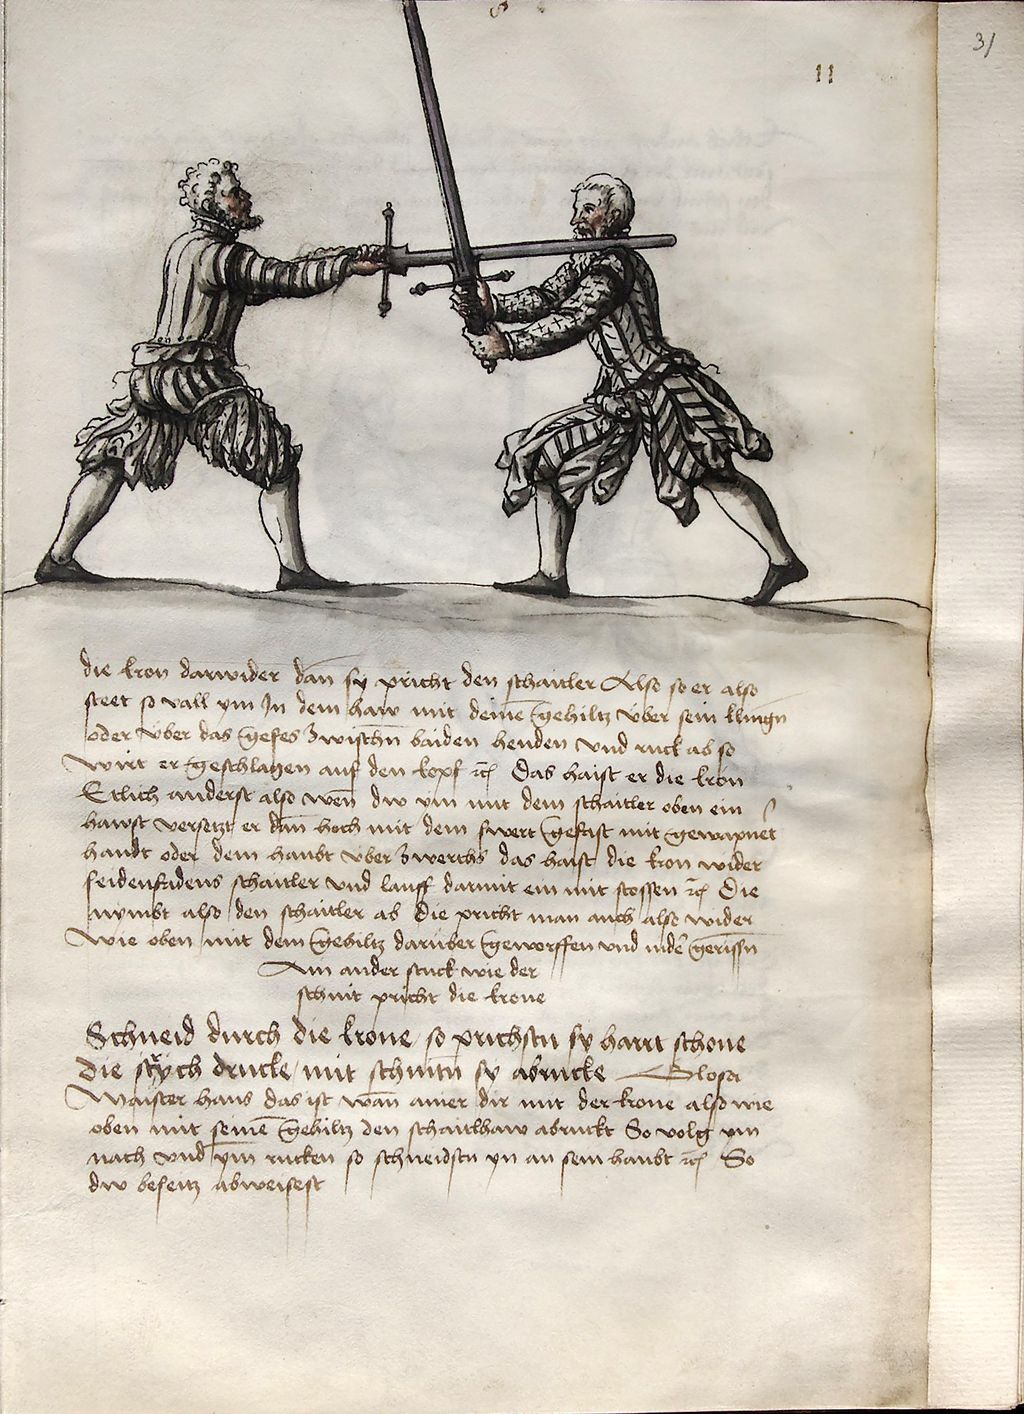 11
31
die kron darwider dañ sy pricht den schaitler Also so er also
steet so vall ym In dem haw mit deinē gehiltz über sein klingñ
oder über das gefes zwischñ baiden henden und ruck ab so
wirt er geschlagen auf den kopf rc̄ Das haist er die kron
Etlich anderst also weñ dw ym mit dem schaitler oben ein
hawst versetzt er dañ hoch mit dem swert gefast mit gewapnet
handt oder dem haubt über zwerchs das haist die kron wider
seidenfadens schaitler und lauff darmit ein mit stossen rc̄ Die
nymbt also den schaitler ab Die pricht man auch also wider
wie oben mit dem gehiltz darüber geworffen und nider gerissñ
Ain ander stuck wie der
schnit pricht die krone
Schneid durch die krone / so prichstu sy hart schone
die strych drucke / mit schnitñ sy abrucke Glosa
Maister hans das ist wañ ainer dir mit der krone also wie
oben mit seinē gehiltz den schaitlhaw abruckt So volg ym
nach und ym rucken so schneidstu yn an sein haubt rc̄ So
dw beseitz abweisest